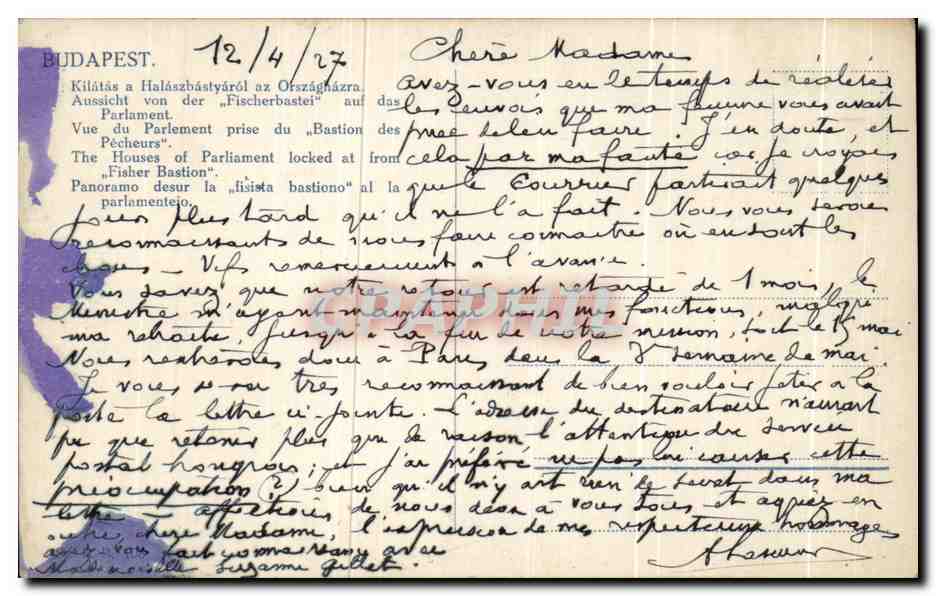 BUDAPEST.
12/4/27
Kilátás a Halászbástyáról az Országházra.
Aussicht von der „Fischerbastei" auf das
Parlament.
Vue du Parlement prise du „Bastion des
Pêcheurs".
The Houses of Parliament locked at from
„Fisher Bastion".
Panoramo desur la „fisista bastiono" al la
parlamentejo.
Chère Madame
avez-vous eu le temps de réaliser
les envois que ma femme vous avait
priée de leur faire. J'en doute, et
cela par ma faute car je croyais
que le Courrier partirait quelques
jours plus tard qu'il ne l'a fait. Nous vous serions
reconnaissants de nous faire connaître où en sont les
choses - Vifs remerciements à l'avance.
Vous savez que notre retour est retardé de 1 mois, le
Ministre m'ayant maintenu dans mes fonctions, malgré
ma retraite, jusqu'à la fin de notre mission, soit le 15 mai
Nous rentrerons donc à Paris dans la semaine de mai.
Je vous serai très reconnaissant de bien vouloir jeter à la
poste la lettre ci-jointe. L'adresse du destinataire n'aurait
pu que retenir plus que de raison l'attention du service
postal hongrois; et j'ai préféré ne pas lui causer cette
préoccupation (?) bien qu'il n'y ait rien de secret dans ma
lettre - affections de nous deux à vous tous et agréez en
outre, chère Madame, l'expression de mes respectueux hommages
avez-vous fait connaissance avec
Mademoiselle Suzanne Gillet.
CPAPHIL